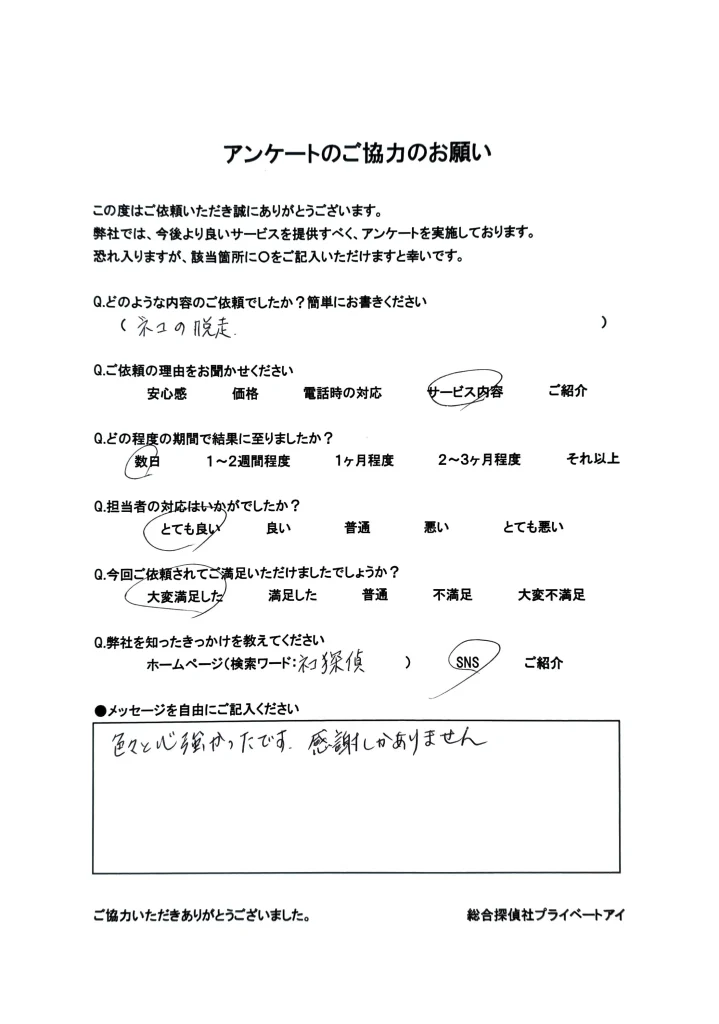 アンケートのご協力のお願い
この度はご依頼いただき誠にありがとうございます。
弊社では、今後より良いサービスを提供すべく、アンケートを実施しております。
恐れ入りますが、該当箇所に〇をご記入いただけますと幸いです。
Q.どのような内容のご依頼でしたか？簡単にお書きください
（ ネコの脱走. ）
Q.ご依頼の理由をお聞かせください
安心感 価格 電話時の対応 サービス内容 ご紹介
Q.どの程度の期間で結果に至りましたか？
数日 1～2週間程度 1ヶ月程度 2～3ヶ月程度 それ以上
Q.担当者の対応はいかがでしたか？
とても良い 良い 普通 悪い とても悪い
Q.今回ご依頼されてご満足いただけましたでしょうか？
大変満足した 満足した 普通 不満足 大変不満足
Q.弊社を知ったきっかけを教えてください
ホームページ（検索ワード：ネコ探偵 ） SNS ご紹介
●メッセージを自由にご記入ください
色々と心強かったです. 感謝しかありません
ご協力いただきありがとうございました。 総合探偵社プライベートアイ